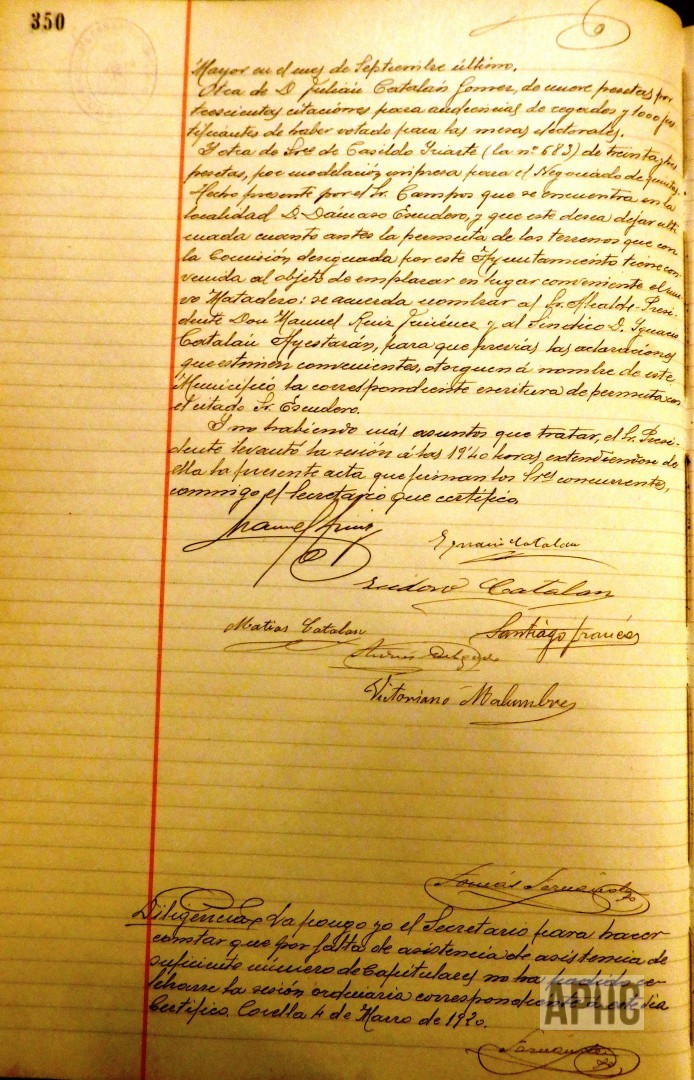 350
Mayor en el mes de Septiembre último.
Otra de D. Julián Catalán Gomez, de nueve pesetas por
trescientas citaciones para audiencias de regados y 1000 jus-
tificantes de haber votado para las mesas electorales.
Y otra de Sres de Casildo Iriarte (la nº 683) de treinta y tres
pesetas, por modelación impresa para el Negociado de quintas.
Hecho presente por el Sr. Campos que se encuentra en la
localidad D. Dámaso Escudero, y que este desea dejar ulti-
mada cuanto antes la permuta de los terrenos que con
la Comisión designada por este Ayuntamiento tiene con-
venida al objeto de emplazar en lugar conveniente el nue-
vo Matadero: se acuerda nombrar al Sr. Alcalde-Presi-
dente Don Manuel Ruiz Jiménez y al Síndico D. Ignacio
Catalán Ayestarán, para que previas las aclaraciones
que estimen convenientes, otorguen á nombre de este
Municipio la correspondiente escritura de permuta con
el citado Sr. Escudero.
Y no habiendo más asuntos que tratar, el Sr. Presi-
dente levantó la sesión á las 19'40 horas extendiendose de
ella la presente acta que firman los Sres concurrentes,
conmigo el Secretario que certifico.
Manuel Ruiz
Ignacio Catalan
Isidoro Catalan
Matias Catalan
Santiago Francés
Andrés Delgado
Victoriano Malumbres
Tomás Fernández
Diligencia La pongo yo el Secretario para hacer
constar que por falta de asistencia de asistencia de
suficiente número de Capitulares no ha podido ce-
lebrarse la sesión ordinaria correspondiente á este día
Certifico. Corella 4 de Marzo de 1920.
APHC
Fernández